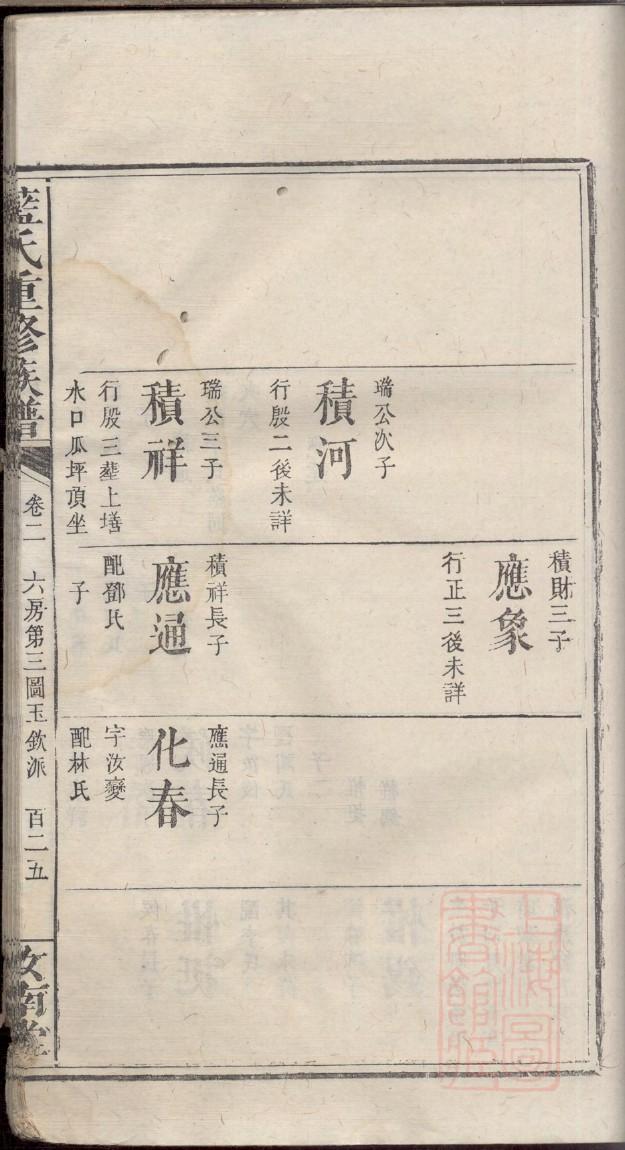 積財三子
應象
行正三後未詳
瑞公次子
積河
行殷二後未詳
瑞公三子
積祥
行殷三塟上墡
水口瓜坪頂坐
積祥長子
應通
配鄧氏
子
應通長子
化春
字汝變
配林氏
藍氏重修族譜
卷二 六房第三圖玉欽派 百二五
汝南堂